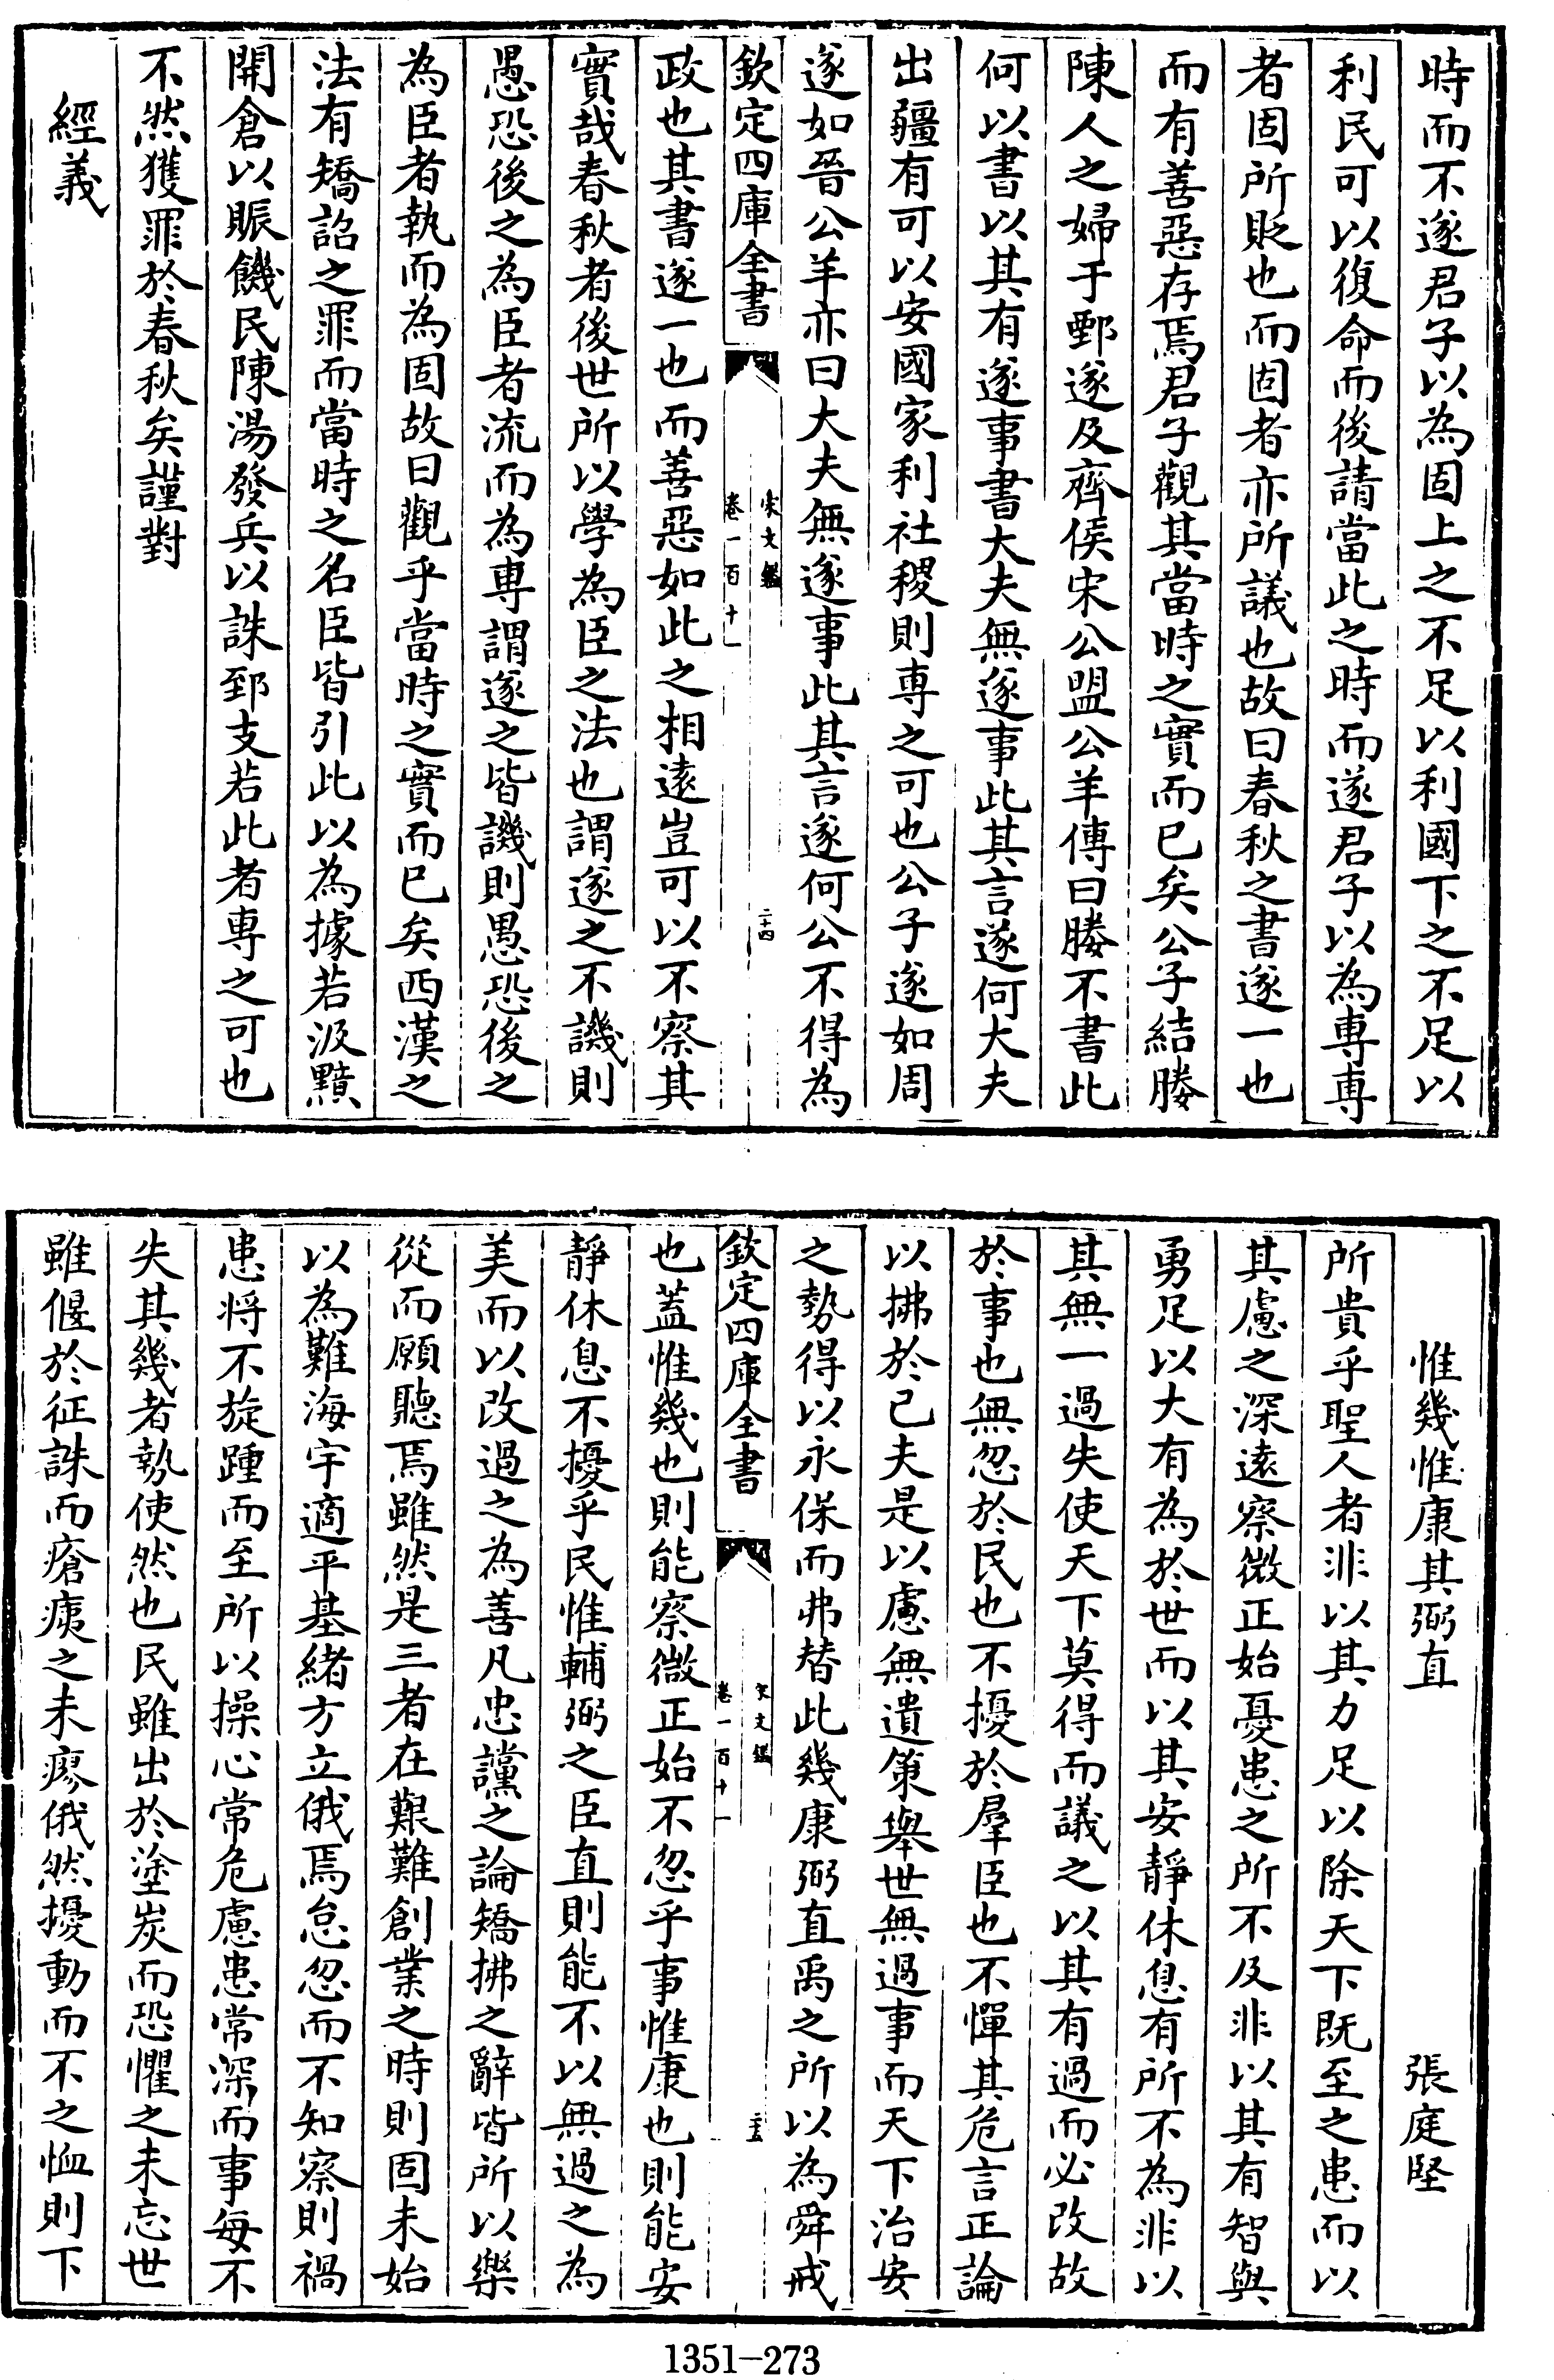 時而不遂君子以為固上之不足以利國下之不足以
利民可以復命而後請當此之時而遂君子以為專專
者固所貶也而固者亦所議也故曰春秋之書遂一也
而有善惡存焉君子觀其當時之實而已矣公子結媵
陳人之婦于鄄遂及齊侯宋公盟公羊傳曰媵不書此
何以書以其有遂事書大夫無遂事此其言遂何大夫
出疆有可以安國家利社稷則專之可也公子遂如周
遂如晉公羊亦曰大夫無遂事此其言遂何公不得為
欽定四庫全書
宋文鑑
卷一百十一
二十四
政也其書遂一也而善惡如此之相遠豈可以不察其
實哉春秋者後世所以學為臣之法也謂遂之不譏則
愚恐後之為臣者流而為專謂遂之皆譏則愚恐後之
為臣者執而為固故曰觀乎當時之實而已矣西漢之
法有矯詔之罪而當時之名臣皆引此以為據若汲黯
開倉以賑饑民陳湯發兵以誅郅支若此者專之可也
不然獲罪於春秋矣謹對
經義
惟幾惟康其弼直
張庭堅
所貴乎聖人者非以其力足以除天下既至之患而以
其慮之深遠察微正始憂患之所不及非以其有智與
勇足以大有為於世而以其安靜休息有所不為非以
其無一過失使天下莫得而議之以其有過而必改故
於事也無忽於民也不擾於羣臣也不憚其危言正論
以拂於己夫是以慮無遺策舉世無過事而天下治安
之勢得以永保而弗替此幾康弼直禹之所以為舜戒
欽定四庫全書
宋文鑑
卷一百十一
二十五
也蓋惟幾也則能察微正始不忽乎事惟康也則能安
靜休息不擾乎民惟輔弼之臣直則能不以無過之為
美而以改過之為善凡忠讜之論矯拂之辭皆所以樂
從而願聽焉雖然是三者在艱難創業之時則固未始
以為難海宇適平基緒方立俄焉怠忽而不知察則禍
患将不旋踵而至所以操心常危慮患常深而事每不
失其幾者勢使然也民雖出於塗炭而恐懼之未忘世
雖偃於征誅而瘡痍之未瘳俄然擾動而不之恤則下
1351-273